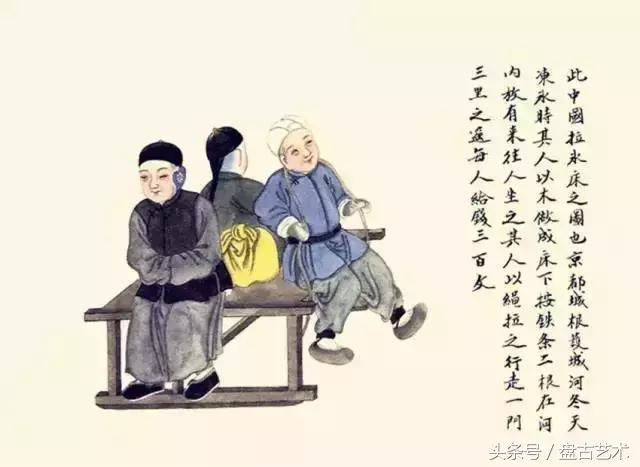 此中國拉氷床之圖也京都城根護城河冬天
凍氷時其人以木做成床下按鉄条二根在河
内放有来往人坐之其人以繩拉之行走一門
三里之遥每人給錢三百文
头条号／盘古艺术